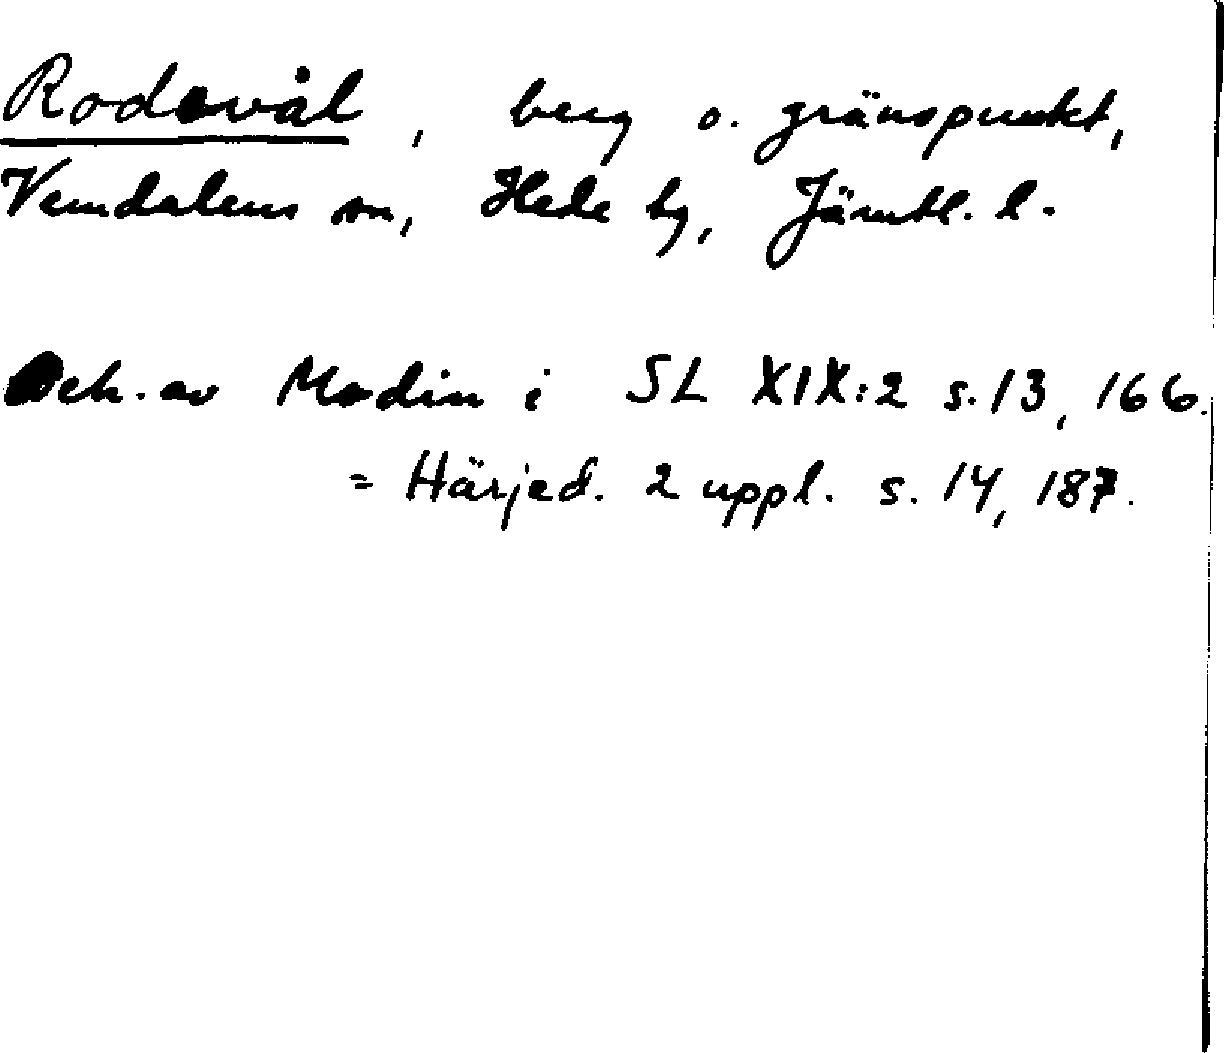 Rodevål, berg o. gränspunkt,
Vemdalens sn, Hede tg, Jämtl. l.
Beh. av Modin i SL XIX:2 s. 13, 166.
= Härjed. 2 uppl. s. 14, 187.